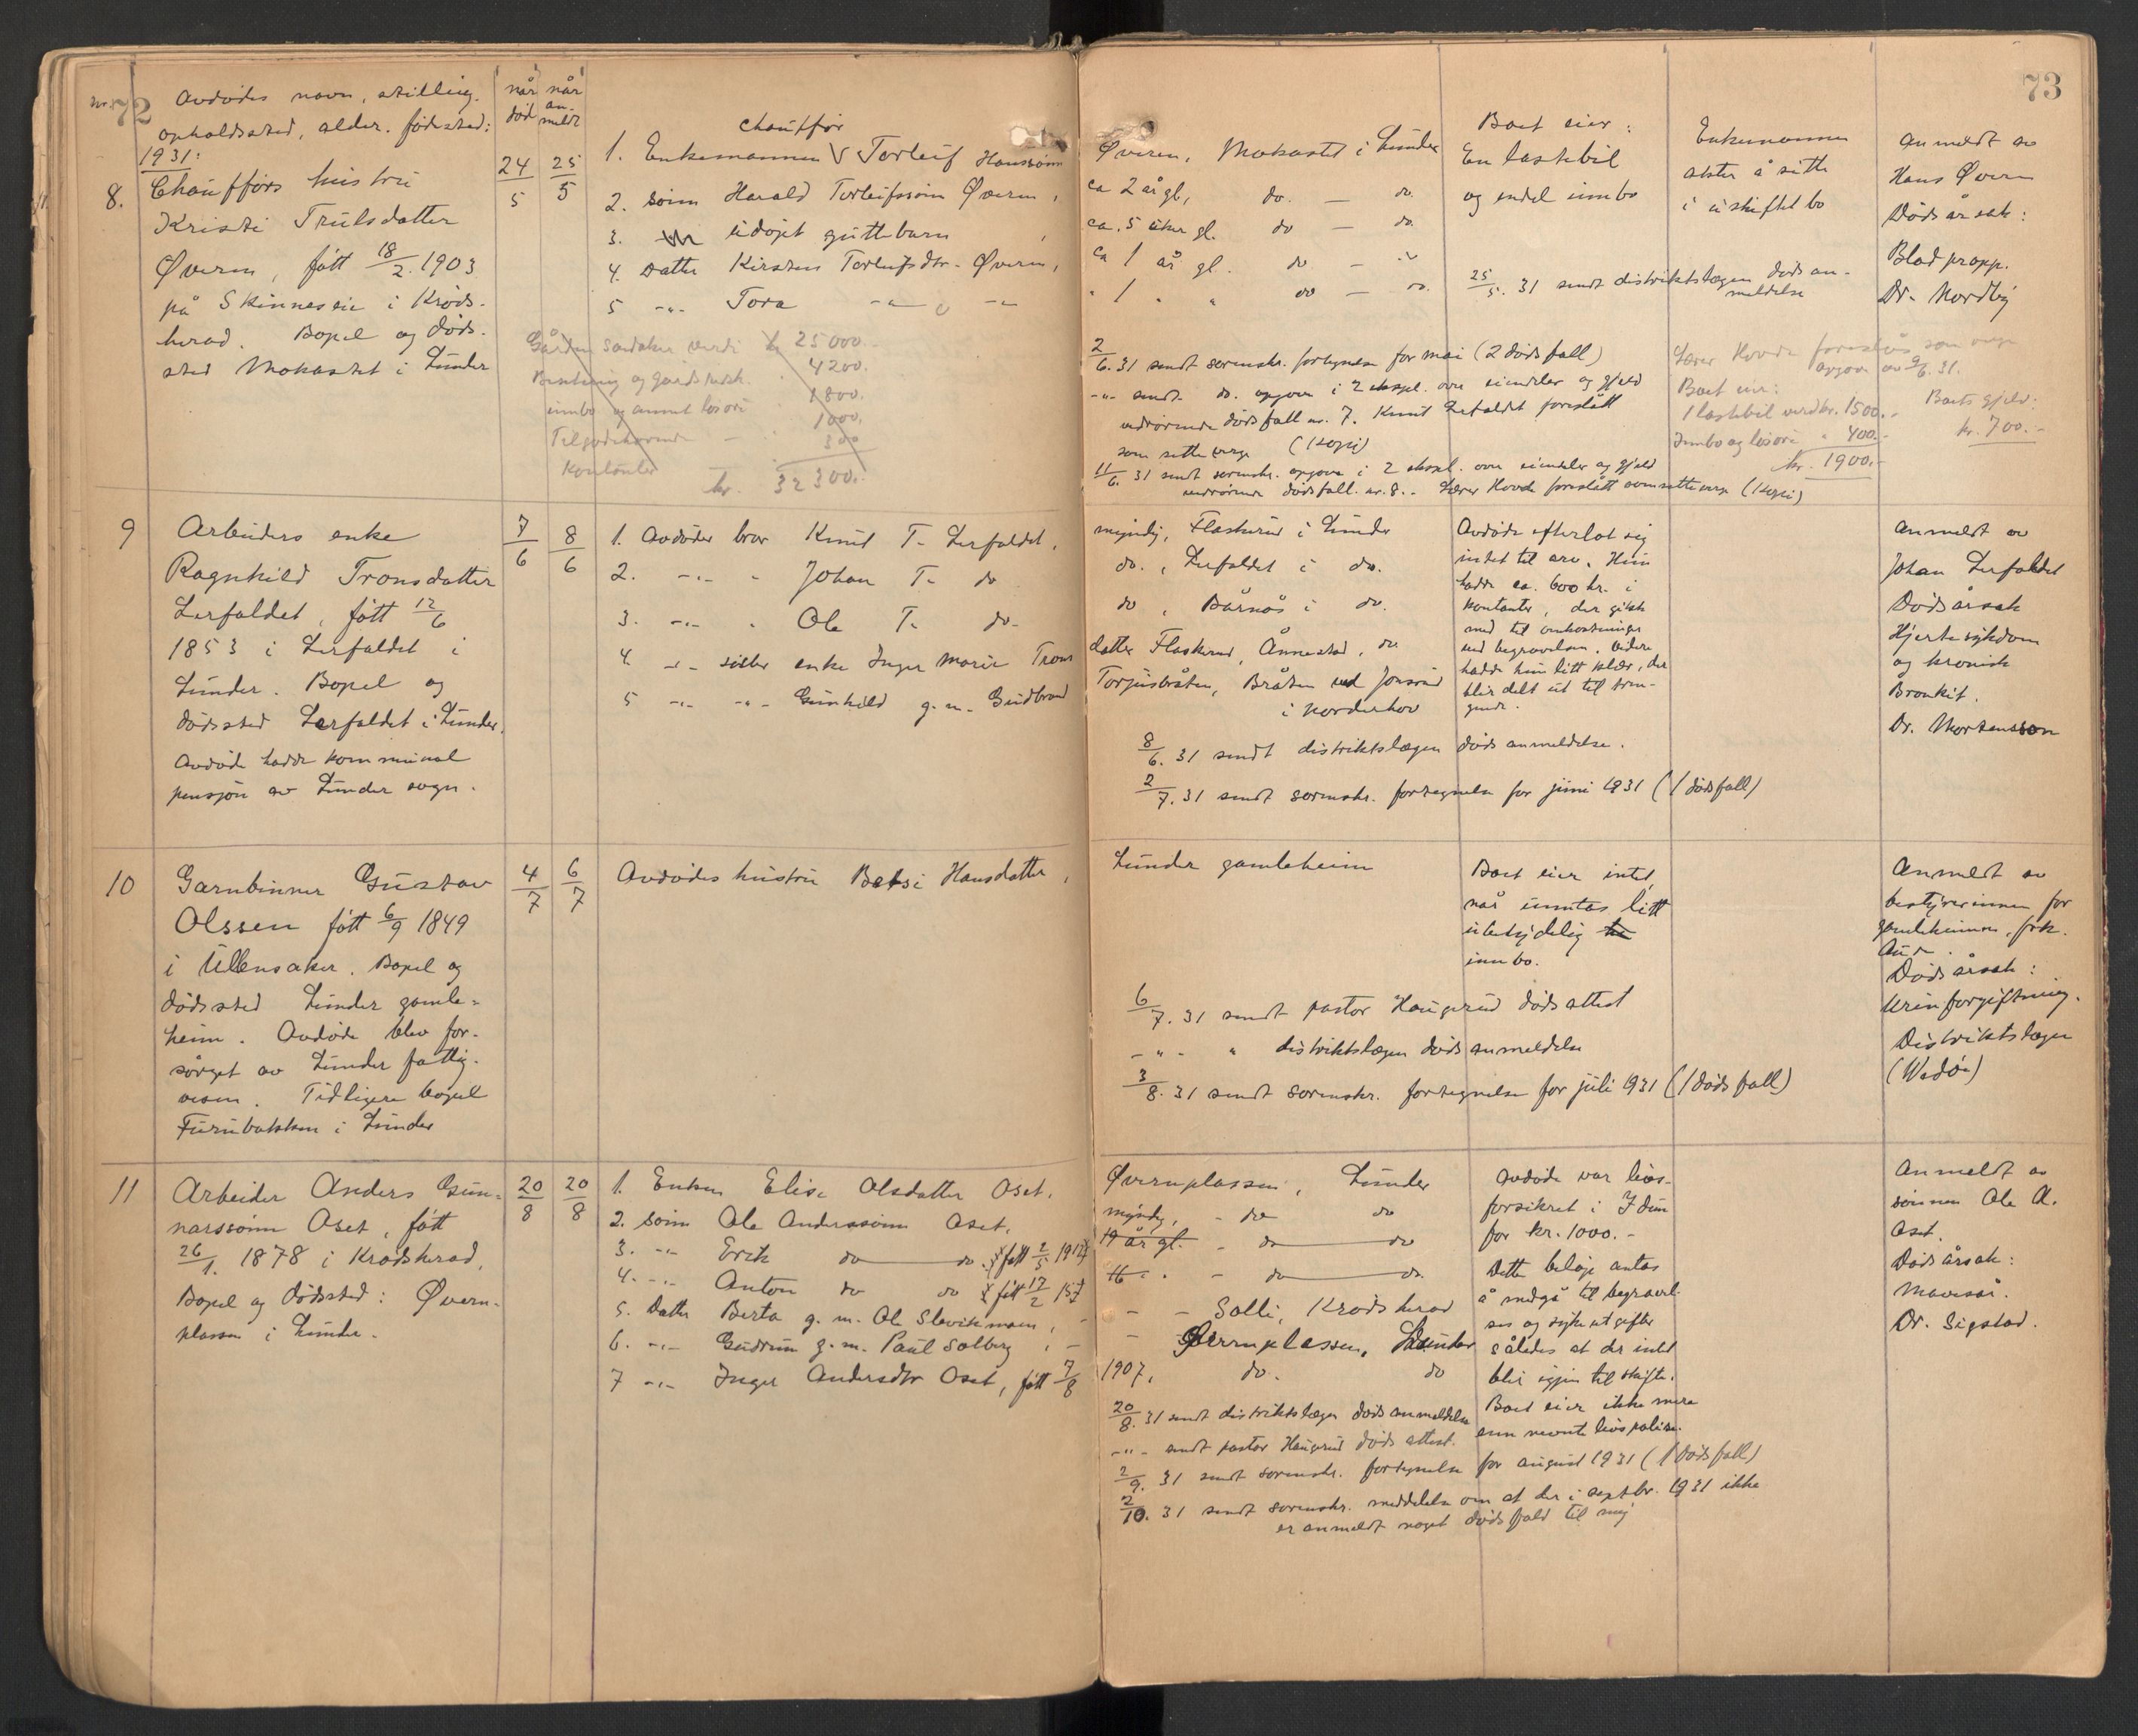 nr. 72
Avdødes navn, stilling
opholdssted, alder, fødested:
når
død
når
an-
meldt
1931:
8.
Chaufførs hustru
Kristi Trulsdatter
Øvern, født 18/2 1903
på Skinneseie i Krøds-
herad. Bopel og døds-
sted Mokastet i Lunder
24/5
25/5
chauffør
1. Enkemannen V Torleif Hanssønn
2. sønn Harald Torleifssønn Øvern,
3. udøpt guttebarn
4. Datter Kirsten Torleifsdtr. Øvern,
5 -"- Tora -"- -"-
Gården Sandaker verdi kr 25000.-
Besetning og gårdsredsk. 4200.
innbo og annet løsøre 1800.
Tilgodehavende - 1000.
Kontanter 300
kr. 32300.-
9
Arbeiders enke
Ragnhild Tronsdatter
Lerfaldet, født 12/6
1853 i Lerfaldet i
Lunder. Bopel og
dødssted Lerfaldet i Lunder.
Avdøde hadde kommunal
pensjon av Lunder sogn.
7/6
8/6
1. Avdødes bror Knut T. Lerfaldet,
2. -"- " Johan T. do
3. -"- " Ole T. do-
4. -"- søster enke Inger Marie Trons
5 -"- -"- Gunhild g.m. Gudbrand
10
Garnbinner Gustav
Olssen født 6/9 1849
i Ullensaker. Bopel og
dødssted Lunder gamle-
heim. Avdøde blev for-
sørget av Lunder fattig-
vesen. Tidligere bopel
Furubakken i Lunder
4/7
6/7
Avdødes hustru Betsi Hansdatter,
11
Arbeider Anders Gun-
narssønn Aset, født
26/1. 1878 i Krødsherad.
Bopel og dødssted: Øvern-
plassen i Lunder.
20/8
20/8
1. Enken Elise Olsdatter Aset.
2. sønn Ole Anderssønn Aset.
3. -"- Erik do — do. født 2/5 1912
4. -"- Anton do do født 17/2 157
5. Datter Berta g.m. Ole Slevikmoen, -
6. -"- Gudrun g.m. Paul Solberg, -
7 -"- Inger Andersdtr Aset, født 7/8
73
Øveren, Mokastet i Lunder
ca 2 år gl, do. — do.
ca. 5 uker gl. do — do.
ca 1 år gl. do — "
" 1 " " do — do.
Boet eier:
En lastebil
og endel innbo
Enkemannen
akter å sitte
i uskiftet bo
Anmeldt av
Hans Øvern
Dødsårsak:
Blodpropp.
Dr. Nordby
25/5. 31 sendt distriktslægen dødsan-
meldelse
2/6. 31 sendt sorenskr. fortegnelse for mai (2 dødsfall)
-"- sendt do. opgave i 2 eksepl. over eiendeler og gjeld
vedrørende dødsfall nr. 7. Knut Lerfaldet foreslått
som setteverge (Kopi)
11/6. 31 sendt sorenskr. opgave i 2 eksepl. over eiendeler og gjeld
vedrørende dødsfall nr. 8. - Lærer Hovde foreslått som setteverge (Kopi)
Lærer Hovde foreslås som verge
opgave av 9/6. 31.
Boet eier:
1 lastebil verd kr. 1500.-
Innbo og løsøre " 400.-
kr. 1900.-
Boets gjeld:
kr. 700.-
myndig, Flaskerud i Lunder
do., Lerfaldet i do.
do, Bårnås i do.
datter Flaskerud, Ånnestad, do
Torjusbråten, Bråten ved Jonsrud
i Norderhov
Avdøde efterlot sig
intet til arv. Hun
hadde ca. 600 kr. i
kontanter, der gikk
med til omkostninger
ved begravelsen. Videre
hadde hun litt klær, der
blir delt ut til tren-
gende.
Anmeldt av
Johan Lerfaldet
Dødsårsak
Hjertesykdom
og kronisk
Bronkit.
Dr. Mortensson
8/6. 31 sendt distriktslægen dødsanmeldelse.
2/7. 31 sendt sorenskr. fortegnelse for juni 1931 (1 dødsfall)
Lunder gamleheim
Boet eier intet,
når unntas litt
ubetydelig
innbo.
Anmeldt av
bestyrerinnen for
gamleheimen, frk.
Dødsårsak:
Urinforgiftning.
Distriktslægen
(Wedøe)
6/7. 31 sendt pastor Haugerud dødsattest
-"- " distriktslægen dødsanmeldelse
3/8. 31 sendt sorenskr. fortegnelse for juli 1931 (1 dødsfall)
Øvernplassen, Lunder
myndig, - do do
19 år gl. - do — do
16 " " - do — do.
- - Solli, Krødsherad
- Øvernplassen, Lunder
1907, do. do
Avdøde var livs-
forsikret i Idun
for kr. 1000.-
Dette beløp antas
å medgå til begravel-
ses og sykeutgifter
således at der intet
blir igjen til skifte.
Boet eier ikke mere
enn nevnte livspolise.
Anmeldt av
sønnen Ole A.
Aset.
Dødsårsak:
Mavesår.
Dr. Sigstad.
20/8. 31 sendt distriktslægen dødsanmeldelse
-"- sendt pastor Haugerud dødsattest.
2/9. 31 sendt sorenskr. fortegnelse for august 1931 (1 dødsfall)
2/10. 31 sendt sorenskr. meddelelse om at der i septbr. 1931 ikke
er anmeldt noget dødsfald til mig